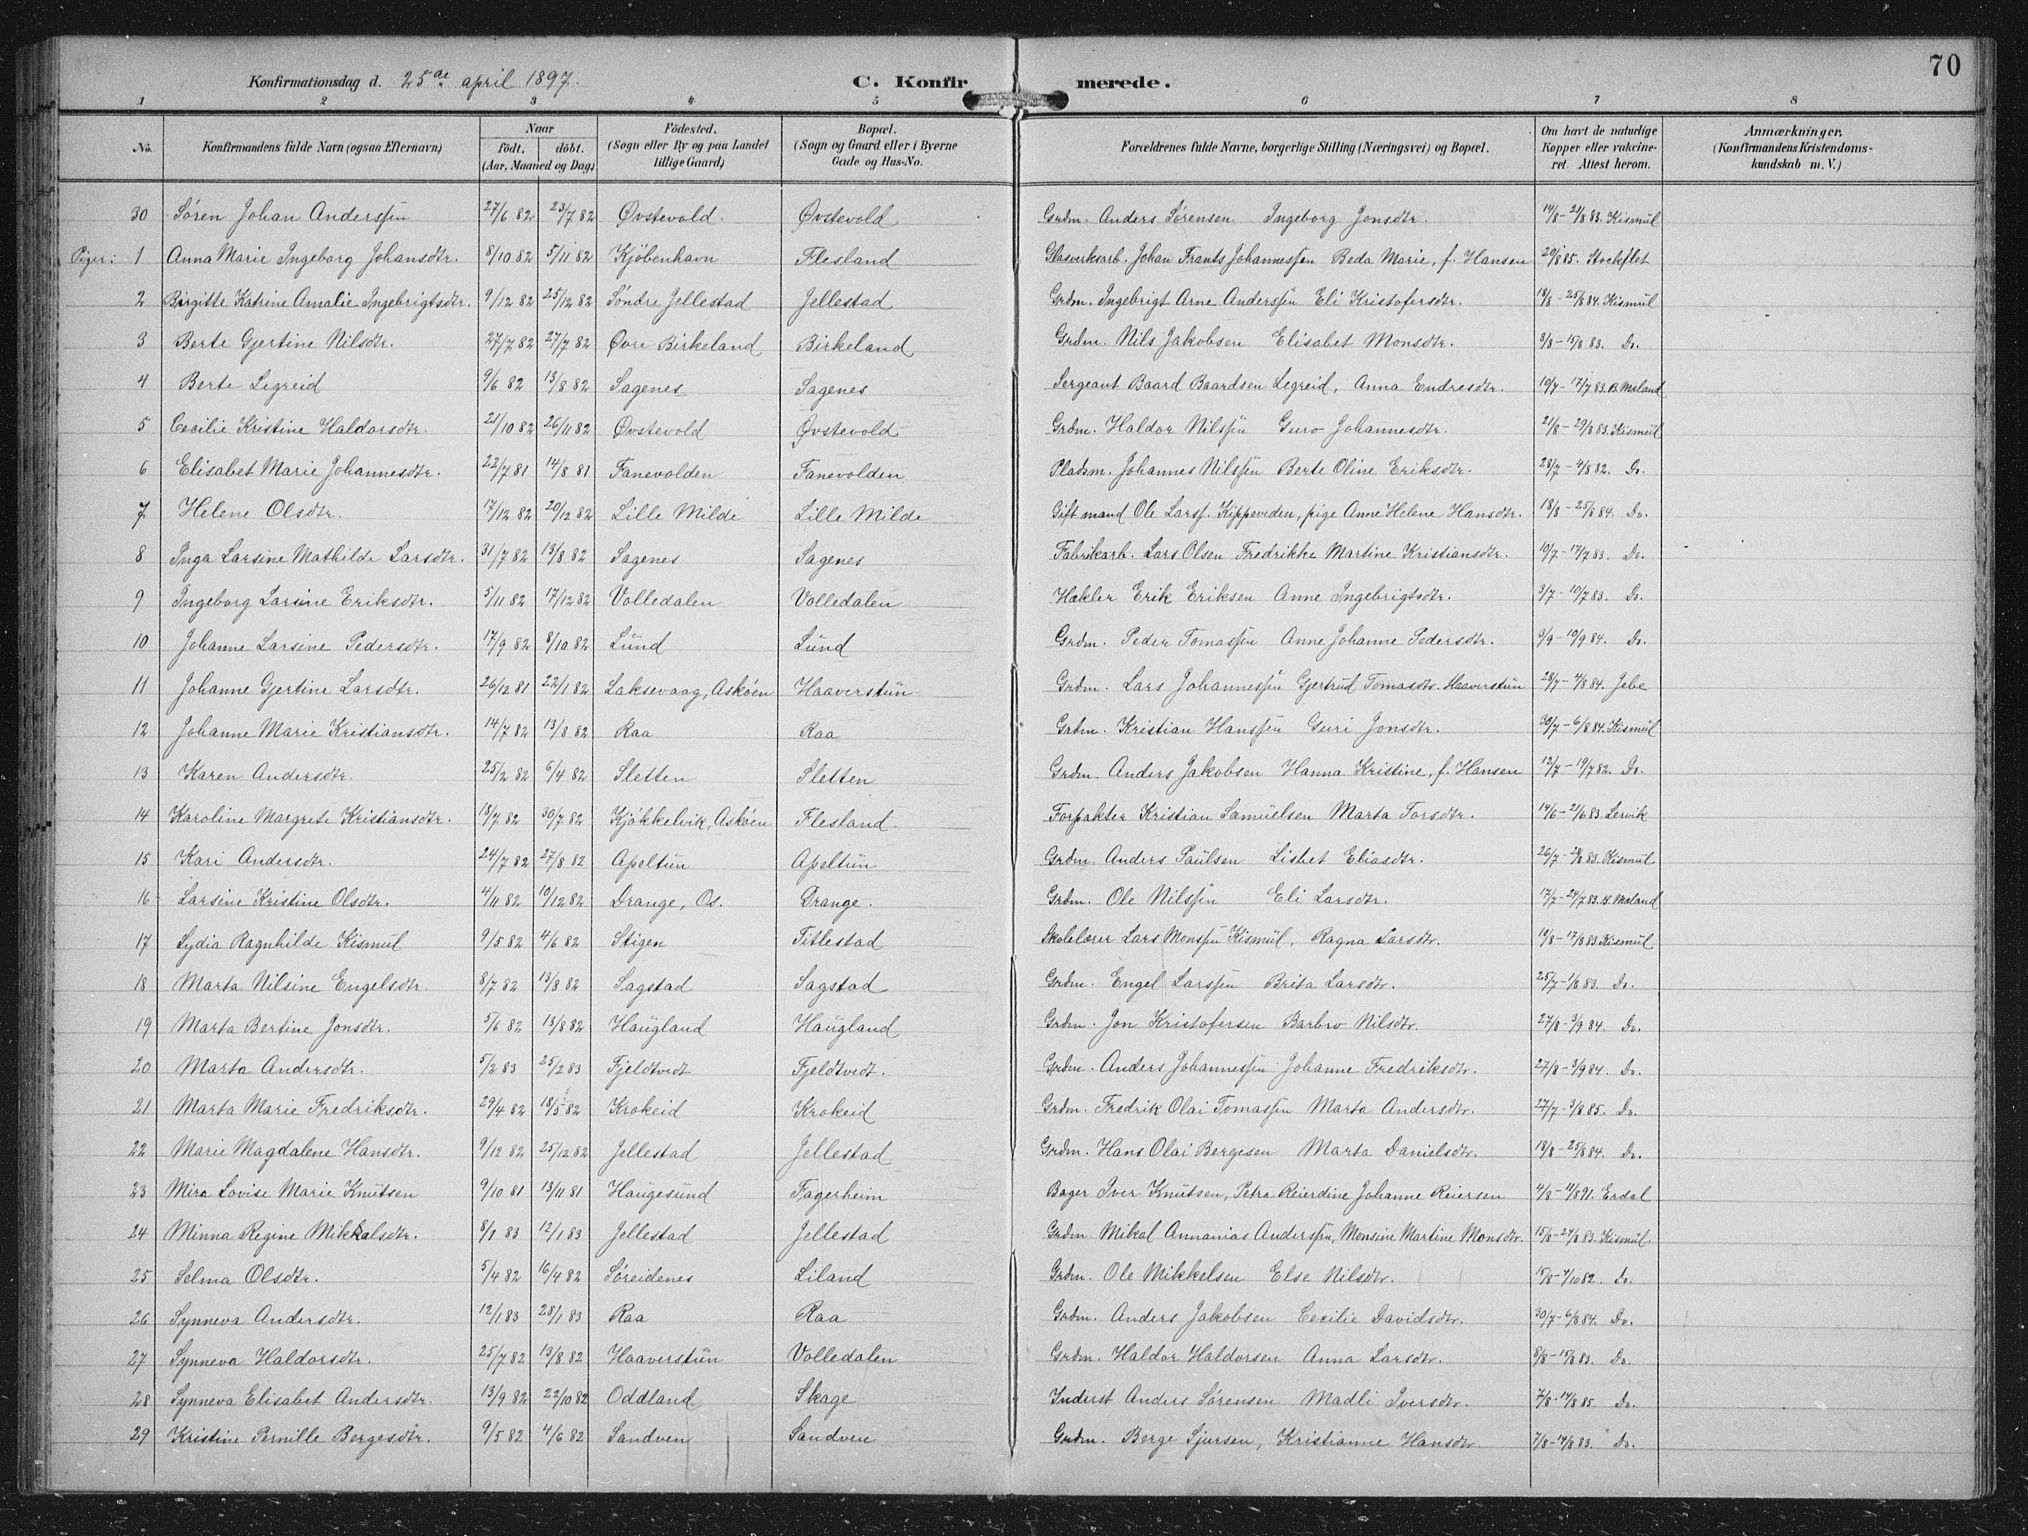 70
Konfirmationsdag d. 25de april 1897. C. Konfirmerede.
1 2 3 4 5 6 7 8
No. Konfirmandens fulde Navn (ogsaa Efternavn) Naar født. døbt. (Aar, Maaned og Dag) Födested. (Sogn eller By og paa Landet tillige Gaard) Bopæl. (Sogn og Gaard eller i Byerne Gade og Hus-No. Forældrenes fulde Navne, borgerlige Stilling (Næringsvei) og Bopæl. Om havt de naturlige Kopper eller vakcineret. Attest herom. Anmærkninger. (Konfirmandens Kristendomskundskab m. V.)
30 Søren Johan Anderssen 27/6 82 23/7 82 Øvstevold Øvstevold Grdm. Anders Sørensen Ingeborg Jonsdtr. 14/8-21/8 83. Kismul
Piger: 1 Anna Marie Ingeborg Johansdtr. 8/10 82 5/11 82 Kjøbenhavn Flesland Glasverksarb. Johan Frants Johannessen Beda Marie, f. Hansen 20/8 85. Stockflet
2 Birgitte Katrine Amalie Ingebrigtsdtr. 9/12 82 25/12 82 Søndre Jellestad Jellestad Grdm. Ingebrigt Arne Anderssen Eli Kristofersdtr. 18/8-25/8 84. Kismul
3 Berte Gjertine Nilsdtr. 27/7 82 27/7 82 Øvre Birkeland Birkeland Grdm. Nils Jakobsen Elisabet Monsdtr. 8/8-15/8 83. Do.
4 Berte Legreid 9/6 82 13/8 82 Sagenes Sagenes Sergeant Baard Baardsen Legreid, Anna Endresdtr. 10/7-17/7 83. B. Moland
5 Cecilie Kristine Haldorsdtr. 21/10 82 26/11 82 Øvstevold Øvstevold Grdm. Haldor Nilssen Guro Johannesdtr. 21/8-29/8 83. Kismul
6 Elisabet Marie Johannesdtr. 22/7 81 14/8 81 Fanevolden Fanevolden Pladsm. Johannes Nilssen Berte Oline Eriksdtr. 28/7-4/8 82. Do.
7 Helene Olsdtr. 17/12 82 20/12 82 Lille Milde Lille Milde Gift mand Ole Larss. Kippeveden, pige Anne Helene Hansdtr. 18/8-25/8 84. Do.
8 Inga Larsine Mathilde Larsdtr. 31/7 82 13/8 82 Sagenes Sagenes Fabrikarb. Lars Olsen Fredrikke Martine Kristiansdtr. 10/7-17/7 83. Do.
9 Ingeborg Larsine Eriksdtr. 5/11 82 17/12 82 Volledalen Volledalen Hækler Erik Eriksen Anne Ingebrigtsdtr. 3/7-10/7 83. Do.
10 Johanne Larsine Pedersdtr. 17/9 82 8/10 82 Lund Lund Grdm. Peder Tomassen Anne Johanne Pedersdtr. 3/9-10/9 84. Do.
11 Johanne Gjertine Larsdtr. 26/12 81 22/1 82 Laksevaag, Askøen Haaverstun Grdm. Lars Johannessen Gjertrud Tomasdtr. Haaverstun 28/7-4/8 84. Jebe
12 Johanne Marie Kristiansdtr. 14/7 82 13/8 82 Raa Raa Grdm. Kristian Hanssen Guri Jonsdtr. 30/7-6/8 84. Kismul
13 Karen Andersdtr. 25/2 82 6/4 82 Sletten Sletten Grdm. Anders Jakobsen Hanna Kristine, f. Hansen 12/7-19/7 82. Do.
14 Karoline Margrete Kristiansdtr. 18/7 82 30/7 82 Kjøkkelvik, Askøen Flesland. Forpakter Kristian Samuelsen Marta Torsdtr. 14/6-21/6 83. Lervik
15 Kari Andersdtr. 24/7 82 27/8 82 Apeltun Apeltun Grdm. Anders Paulsen Lisbet Eliasdtr. 26/7-2/8 83. Kismul
16 Larsine Kristine Olsdtr. 4/11 82 10/12 82 Drange, Os. Drange. Grdm. Ole Nilssen Eli Larsdtr. 17/7-24/7 83. B. Moland
17 Lydia Ragnhilde Kismul 9/5 82 4/6 82 Stigen Titlestad Skolelærer Lars Monssen Kismul, Ragna Larsdtr. 10/8-17/8 83. Kismul
18 Marta Nilsine Engelsdtr. 8/7 82 13/8 82 Sagstad Sagstad Grdm. Engel Larssen Brita Larsdtr. 25/7-1/8 83. Do.
19 Marta Bertine Jonsdtr. 5/6 82 13/8 82 Haugland Haugland Grdm. Jon Kristofersen Barbro Nilsdtr. 27/8-3/9 84. Do.
20 Marta Andersdtr. 5/2 83 25/2 83 Fjeldtvedt Fjeldtvedt. Grdm. Anders Johannessen Johanne Fredriksdtr. 27/8-3/9 84. Do.
21 Marta Marie Fredriksdtr. 29/4 82 18/5 82 Krokeid Krokeid Grdm. Fredrik Olai Tomassen Marta Andersdtr. 27/7-3/8 85. Do.
22 Marie Magdalene Hansdtr. 9/12 82 25/12 82 Jellestad Jellestad Grdm. Hans Olai Bergesen Marta Danielsdtr. 18/8-25/8 84. Do.
23 Mira Lovise Marie Knutsen 9/10 81 13/11 81 Haugesund Fagerheim Bager Iver Knutsen, Petra Reierdine Johanne Reiersen 4/8-11/8 91. Erdal
24 Minna Regine Mikkalsdtr. 8/1 83 12/1 83 Jellestad Jellestad Grdm. Mikal Annanias Anderssen, Monsine Martine Monsdtr. Kismul.
25 Selma Olsdtr. 5/4 82 16/4 82 Søreidenes Liland Grdm. Ole Mikkelsen Else Nilsdtr. Do.
26 Synneva Andersdtr. 12/1 83 28/1 83 Raa Raa Grdm. Anders Jakobsen Cecilie Davidsdtr. 30/7-6/8 84. Do.
27 Synneva Haldorsdtr. 25/7 82 13/8 82 Haaverstun Volledalen Grdm. Haldor Haldorsen Anna Larsdtr. 8/8-15/8 83. Do.
28 Synneva Elisabet Andersdtr. 13/9 82 22/10 82 Oddland Skage Inderst Anders Sørensen Madli Iversdtr. 7/8-14/8 85. Do.
29 Kristine Pernille Bergesdtr. 9/5 82 4/6 82 Sandven Sandven Grdm. Berge Sjursen, Kristianne Hansdtr. 7/8-14/8 83. Do.